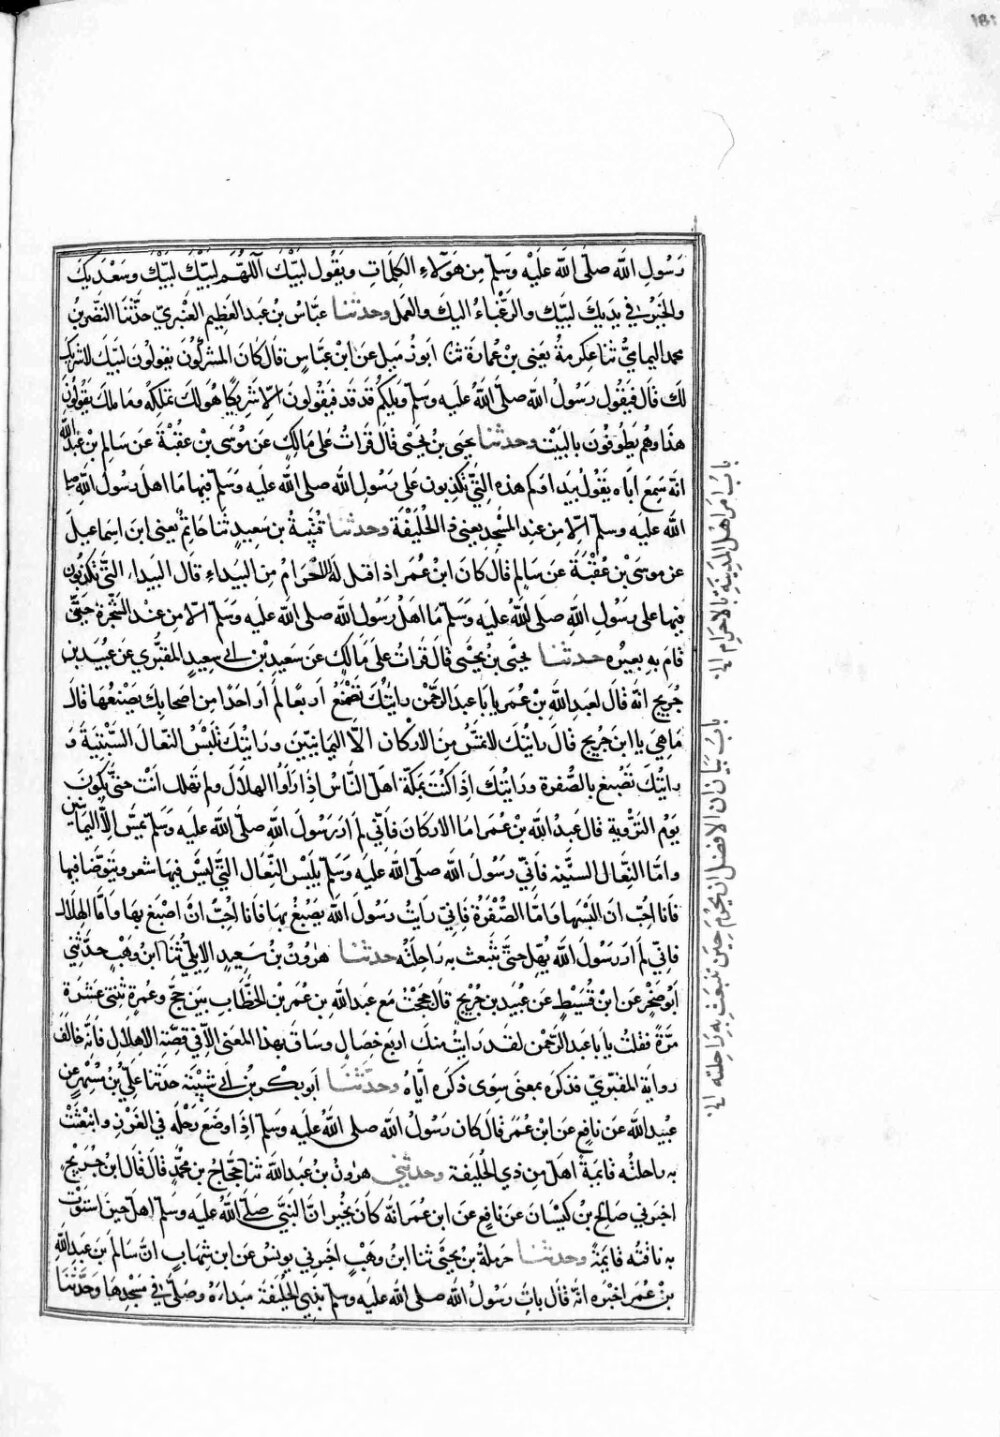 181
رَسُولِ اللَّه صلَّى اللَّه عَلَيْه وَسَلَّم مِن هَؤُلاءِ الكِلمَاتِ وَيَقُول لَبَّيْكَ اللَّهُمَّ لَبَّيْكَ لَبَّيْكَ وَسَعْدَيْكَ
والخَيْرُ فِي يَديكَ لبَّيك والرَّغْبَاءُ اليكَ والعَمل وحدثنا عبَّاسُ بن عَبدالعَظِيم العَنْبَريّ حدَّثَنَا النَّضرُبنُ
محمد اليمَاميُّ ثنا عِكرمةُ يَعنى بْنَ عُمارَةَ ثنا ابوزُمَيل عَن ابْن عبَّاسٍ قال كَانَ المشركُونَ يقولُونَ لَبَّيكَ لاشَريْكَ
لكَ قال فَيَقُول رَسُولُ اللَّه صلَّى اللَّهُ عَلَيه وَسَلَّم وَيلَكُم قَد قَد فَيقُولونَ الَّا شَرِيكًا هُوَلكَ تملكُهُ ومَا ملكَ يَقُولُونَ
هذا وهُم يَطُوفُونَ بالبَيْت وحدثنا يحيى بن يحيى قال قَرَأتُ على مَالِكٍ عَن مُوسى بن عُقْبَةَ عَن سَالِم بن عبدالله
انّهُ سَمِعَ اباهُ يقُولُ بَيداؤكم هذه التِّي تَكذِبون عَلى رَسُولِ اللَّه صلى اللَّه عَلَيه وَسَلَّم فيها مَا اهل رَسُولُ اللَّهِ صلى
اللَّه عليه وسَلَّم الَّا مِن عِند المسْجِد يعنى ذا الحُلَيْفَة وحدثنا قُتَيْبةُ بن سَعِيدٍ ثنا حَاتِمٌ يعنى ابنَ اسماعِيلَ
عن موسَى بن عُقْبَةَ عَن سَالِم قال كانَ ابن عُمَر اذا قيل لهُ الاحْرَامُ مِن البَيداءِ قال البيداءُ التَّي تكذِبُون
فيها على رَسُولِ اللَّهِ صلَى اللَّهُ عليه وَسَلم مَا اهَلَّ رَسُولُ اللَّهِ صلى الله عَليه وسلم الَّا مِن عِند الشَجَرَة حَتَّى
قامَ بهِ بعيرُه حدثنا يحيَى بن يحيَى قال قَرأتُ على مَالِكٍ عَن سَعِيدِ بن ابي سعيدٍ المَقبُرِي عَن عُبَيدبن
جُرَيجٍ انّهُ قالَ لعَبدِ اللَّهِ بنِ عُمَر يا بَا عبدالرَّحْمن رايتُكَ تَصْنَعُ اربَعًا لم ار احَدًا مِن اصْحَابِكَ يَصْنَعُهَا قالَ
مَا هِيَ يا ابنَ جريج قَال رايتُكَ لا تمَسُّ مِنَ الاركان الَّا اليَمانيَّينَ ورَايتُكَ تَلبَسُ النعالَ السِّبْتِيَةَ وَ
رايتُكَ تَصْبغ بِالصُّفرة ورَايتُكَ اِذَا كُنتَ بمَكّةَ اهلَّ النَّاسُ اِذَا رَأوُا الهِلالَ ولم تُهلل انت حَتَّى يكونَ
يَومُ التَّرْوِية قال عبدُ اللَّه بن عُمَر امّا الاركان فانّي لم ارَ رَسُولَ اللَّهِ صلَّى اللَّهُ عَليه وَسَلَّم يَمَسُّ اِلَّا اليمانيَّينِ
وامّا النِّعَال السبتيه فانّي رَسُولَ اللَّه صلَّى اللَّه عَلَيه وَسَلَّم يَلْبَسُ النِّعَال التَّي لَيسَ فيهَا شعر ويَتَوضّأ فيها
فانا احُبّ انَ البَسها وامَّا الصُّفْرَةُ فانّي رَايتُ رسُولَ اللَّه يَصْبَغُ بها فانا احُبّ انّ اصْبغ بها وامَّا الهِلَال
فانِّي لم ارَ رَسُولَ اللَّه يُهِلّ حَتَّى تنْبعث به رَاحِلَتُهُ حدثنا هرُوْن بن سَعِيدٍ الايليُّ ثنا ابن وَهْبٍ حدَّثنِي
ابُو صَخْرٍ عَن ابن قُسَيْطٍ عَن عُبَيد بن جُرَيْجٍ قالَ حَججْتُ مع عبدالله بن عُمر بن الخطَّاب بَين حجّ وعُمرةٍ ثِنْتى عَشرَة
مرّةً فقلتُ يا باعَبدالرَّحْمن لَقَد رَايتُ منكَ اربعَ خِصَالٍ وسَاق بهذا المَعْنَى اِلّا فِي قِصّة الاهلالِ فانّهُ خالَفَ
روايَةَ المَقْبُرِيّ فذكرَهُ بمعنى سِوَى ذكرِهِ ايّاهُ وحدَّثَنا ابوبكر بن ابي شَيْبَةَ حدثنا عَلِيُّ بن مُسْهِرٍ عَن
عُبيد اللَّه عَن نافِعٍ عَن ابن عُمَر قال كان رَسُولُ اللَّه صلى اللَّهُ عَليه وَسلم اذا وَضَعَ رجْلَهُ في الغَرْزِ وانبَعَثَتْ
به راحلتُه قايمةً اهَلَّ مِن ذِي الحُلَيفة وحدثني هرُون بن عَبدالله ثنا حجَّاجُ بن مُحمَّدٍ قالَ قال ابن جُرَيْجٍ
اخبَرني صالحُ بن كَيْسَانَ عَن نَافِعٍ عَن ابن عُمَر انَّهُ كانَ يخُبِرُ انَّ النَّبِيَّ صلَى اللَّه عليه وسَلم اهَلَّ حينَ استَوَتْ
به ناقتُه قايمَةً وحدثنا حرملةُ بن يحيَى ثنا ابنُ وَهْبٍ اخبرَني يونُسُ عَن ابن شهابٍ انَّ سَالمَ بنَ عَبدِاللَّهِ
بن عُمرَ اخبَرهُ انّ قال باتَ رَسُولُ اللَّه صلى الله عَليه وسلم بِذِي الحُلَيفَة مَبدأهُ وصَلَّى في مَسْجِدِهَا وَحَدَّثَنَا
بابُ امَر اهْل المَدِينَة بالاحْرَام
بابُ بيَان انَ الافضَل ان يحُرِمَ حِينَ تنبَعثُ به رَاحِلته